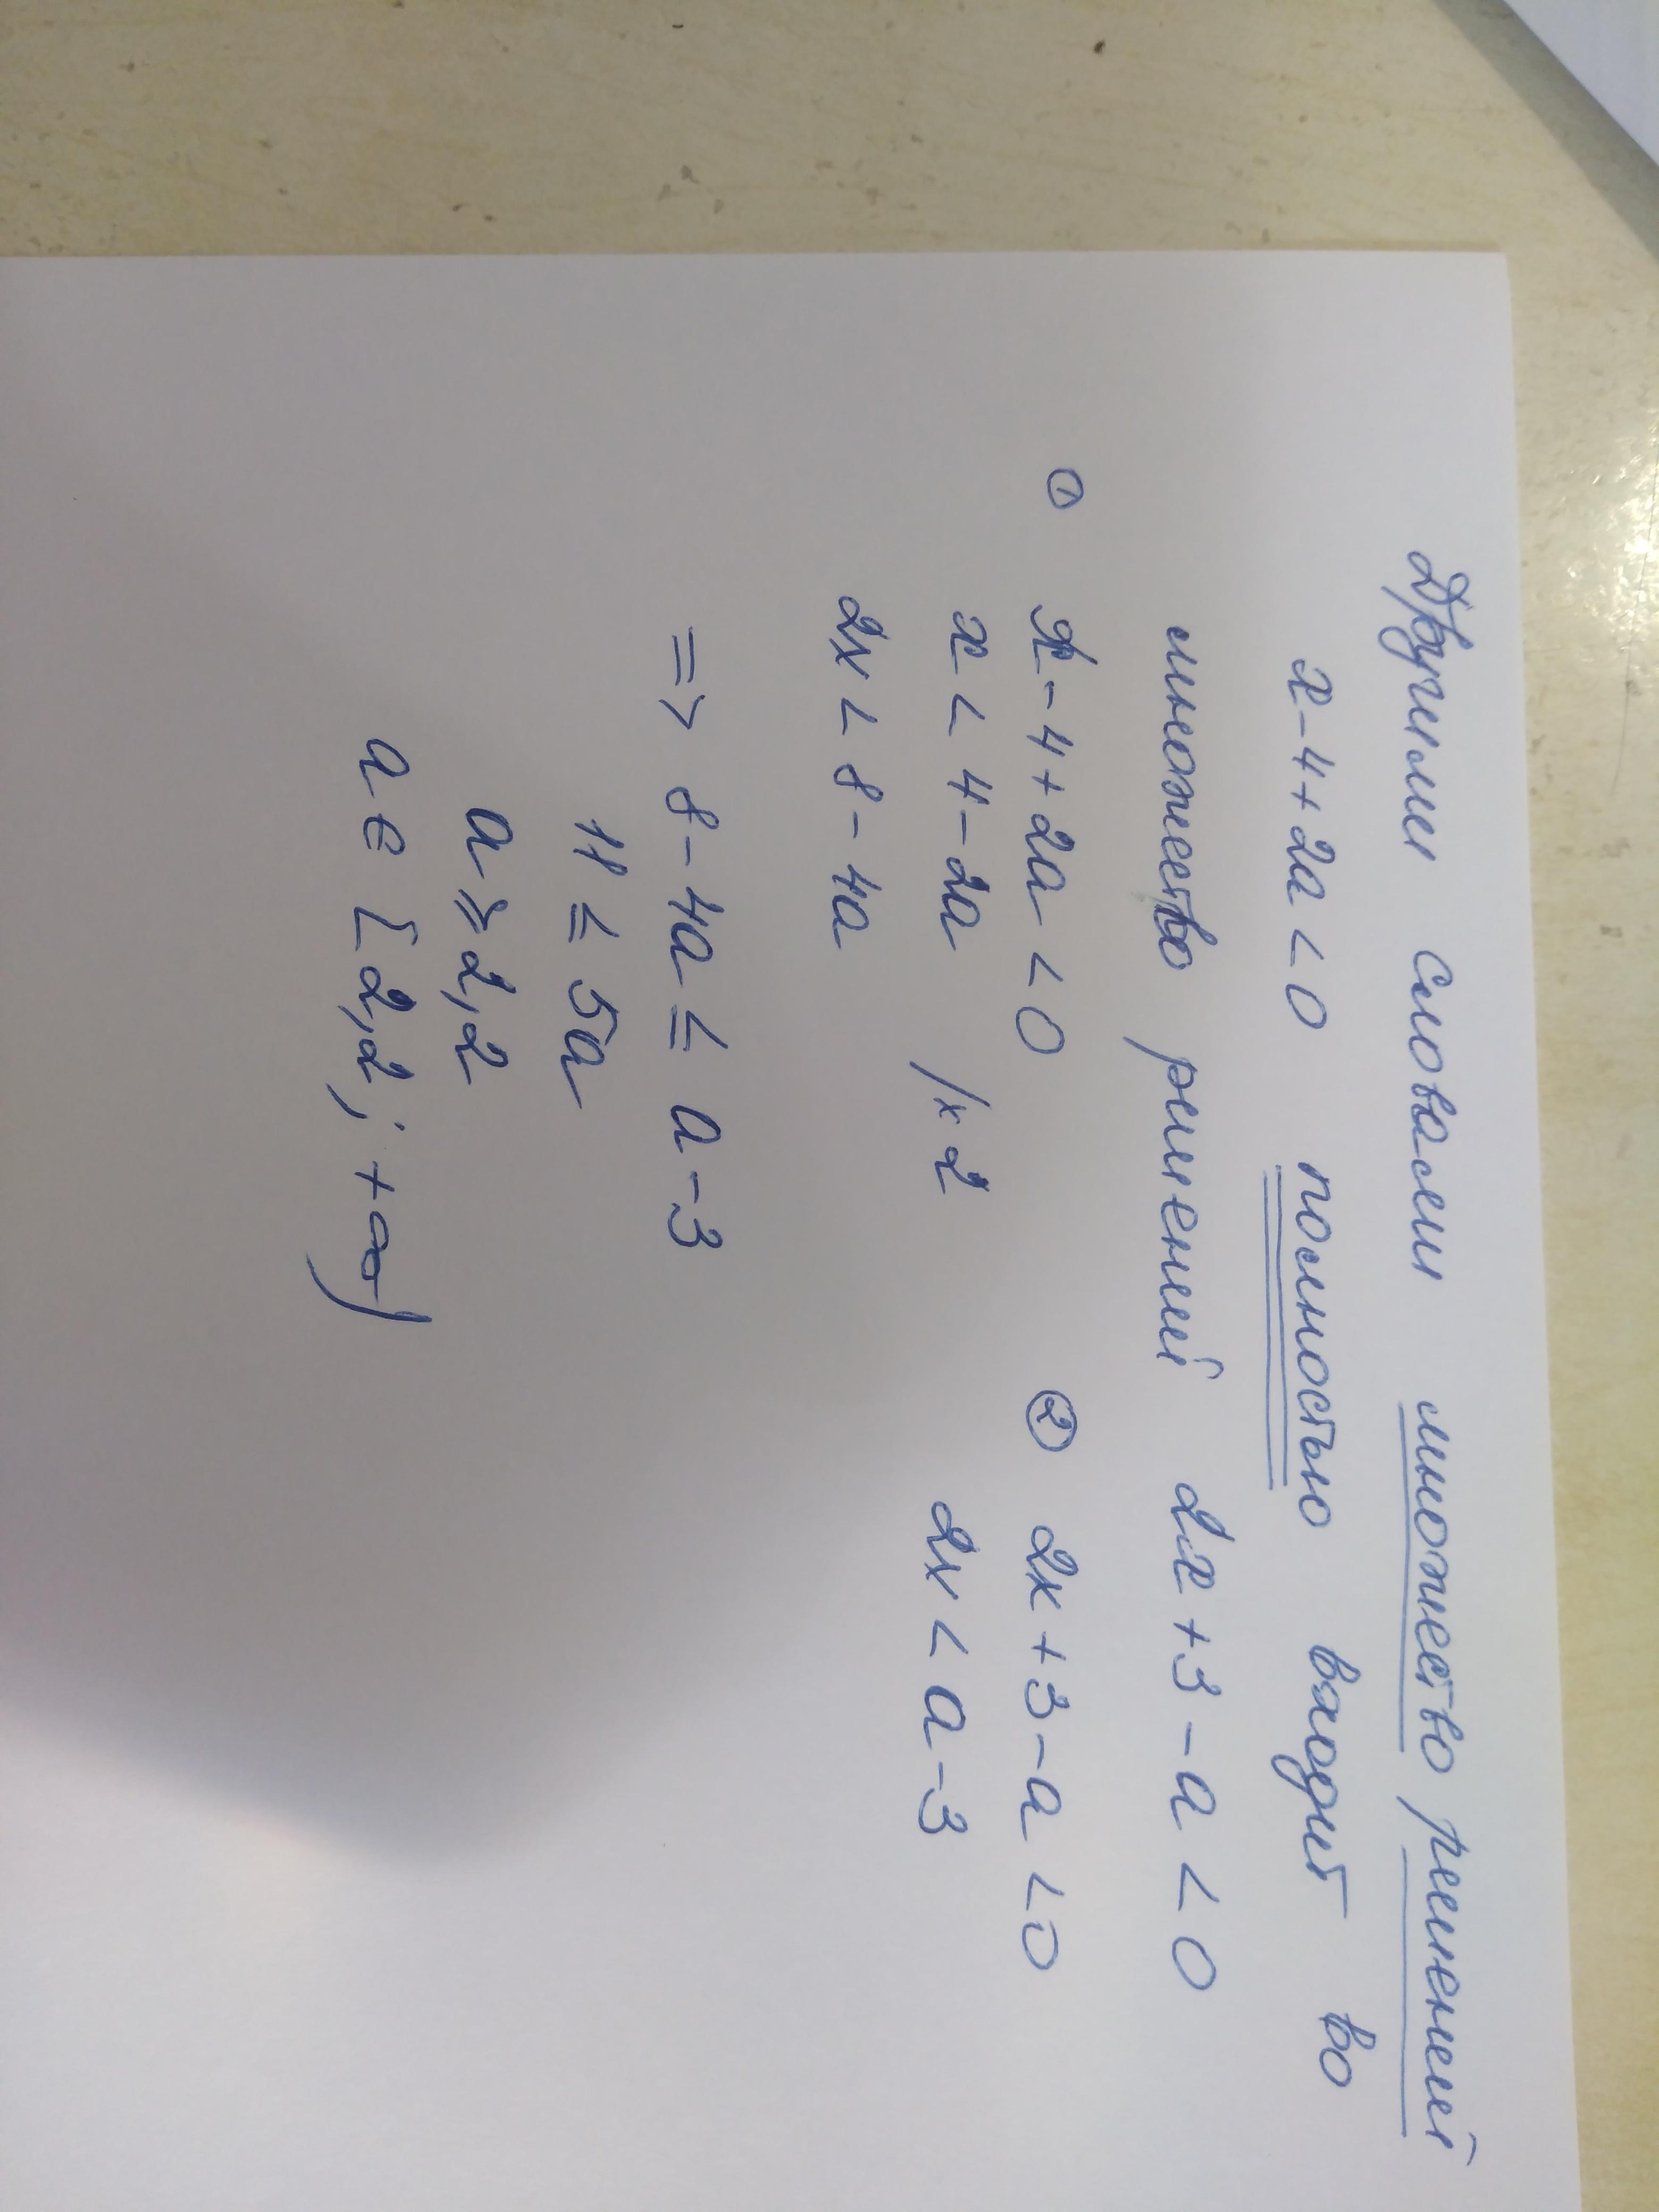 Другими словами множество решений
x-4+2a<0 полностью входит во
множество решений 2x+3-a<0
① x-4+2a<0 ② 2x+3-a<0
x<4-2a /×2 2x<a-3
2x<8-4a
=> 8-4a≤a-3
11≤5a
a⩾2,2
a∈[2,2; +∞)